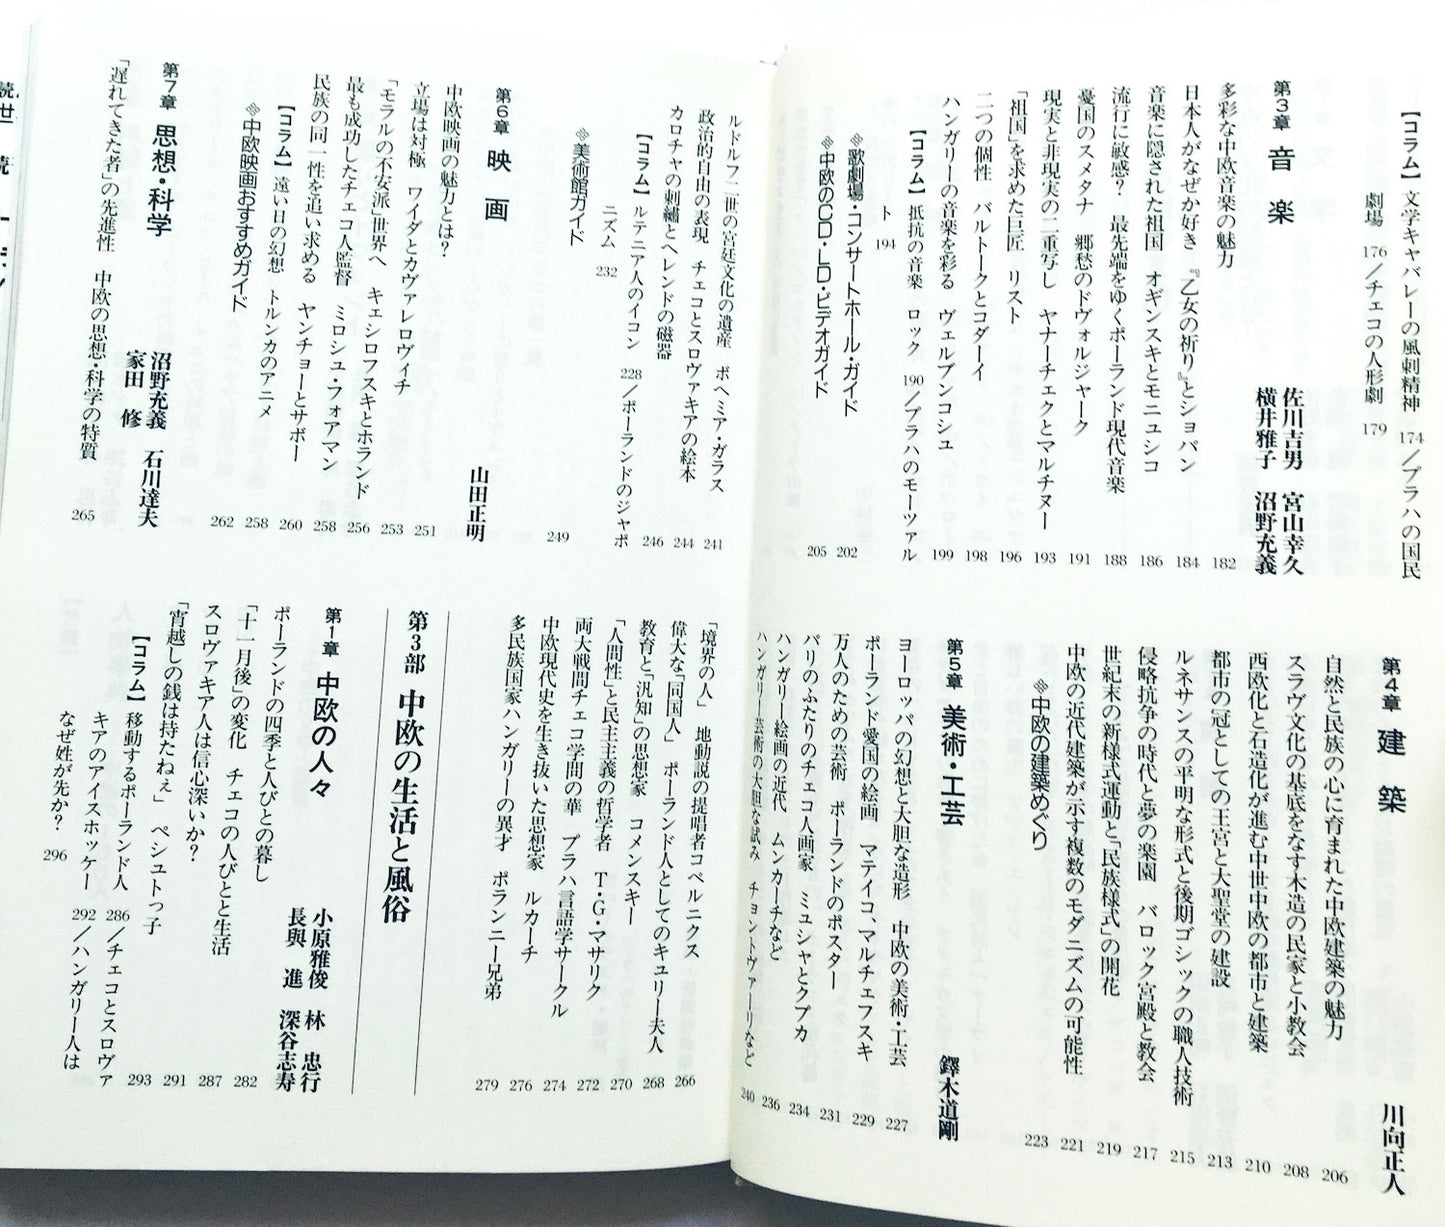 【コラム】文学キャバレーの風刺精神 174／プラハの国民
劇場 176／チェコの人形劇 179
第3章 音楽
佐川吉男 宮山幸久
横井雅子 沼野充義
多彩な中欧音楽の魅力 182
日本人がなぜか好き 『乙女の祈り』とショパン 184
音楽に隠された祖国 オギンスキとモニュシコ 186
流行に敏感? 最先端をゆくポーランド現代音楽 188
憂国のスメタナ 郷愁のドヴォルジャーク 191
現実と非現実の二重写し ヤナーチェクとマルチヌー 193
「祖国」を求めた巨匠 リスト 196
二つの個性 バルトークとコダーイ 198
ハンガリーの音楽を彩る ヴェルブンコシュ 199
【コラム】抵抗の音楽 ロック 190／プラハのモーツァル
ト 194
歌劇場・コンサートホール・ガイド 202
中欧のCD・LD・ビデオガイド 205
第4章 建築
川向正人
自然と民族の心に育まれた中欧建築の魅力 206
スラヴ文化の基底をなす木造の民家と小教会 208
西欧化と石造化が進む中世中欧の都市と建築 210
都市の冠としての王宮と大聖堂の建設 213
ルネサンスの平明な形式と後期ゴシックの職人技術 215
侵略抗争の時代と夢の楽園 バロック宮殿と教会 217
世紀末の新様式運動と「民族様式」の開花 219
中欧の近代建築が示す複数のモダニズムの可能性 221
中欧の建築めぐり 223
第5章 美術・工芸
鐸木道剛
ヨーロッパの幻想と大胆な造形 中欧の美術・工芸 227
ポーランド愛国の絵画 マテイコ、マルチェフスキ 229
万人のための芸術 ポーランドのポスター 231
パリのふたりのチェコ人画家 ミュシャとクプカ 234
ハンガリー絵画の近代 ムンカーチなど 236
ハンガリー芸術の大胆な試み チョントヴァーリなど 240
ルドルフ二世の宮廷文化の遺産 ボヘミア・ガラス 241
政治的自由の表現 チェコとスロヴァキアの絵本 244
カロチャの刺繡とヘレンドの磁器 246
【コラム】ルテニア人のイコン 228／ポーランドのジャポ
ニズム 232
美術館ガイド 249
第6章 映画
山田正明
中欧映画の魅力とは? 251
立場は対極 ワイダとカヴァレロヴィチ 253
「モラルの不安派」世界へ キェシロフスキとホランド 256
最も成功したチェコ人監督 ミロシュ・フォアマン 258
民族の同一性を追い求める ヤンチョーとサボー 260
【コラム】遠い日の幻想 トルンカのアニメ 258
中欧映画おすすめガイド 262
第7章 思想・科学
沼野充義 石川達夫
家田 修
「遅れてきた者」の先進性 中欧の思想・科学の特質 265
「境界の人」 地動説の提唱者コペルニクス 266
偉大な「同国人」 ポーランド人としてのキュリー夫人 268
教育と「汎知」の思想家 コメンスキー 270
「人間性」と民主主義の哲学者 T・G・マサリク 272
両大戦間チェコ学問の華 プラハ言語学サークル 274
中欧現代史を生き抜いた思想家 ルカーチ 276
多民族国家ハンガリーの異才 ポランニー兄弟 279
第3部 中欧の生活と風俗
第1章 中欧の人々
小原雅俊 林 忠行
長與 進 深谷志寿
ポーランドの四季と人びとの暮し 282
「十一月後」の変化 チェコの人びとと生活 287
スロヴァキア人は信心深いか? 291
「宵越しの銭は持たねぇ」 ペシュトっ子 293
【コラム】移動するポーランド人 286／チェコとスロヴァ
キアのアイスホッケー 292／ハンガリー人は
なぜ姓が先か? 296